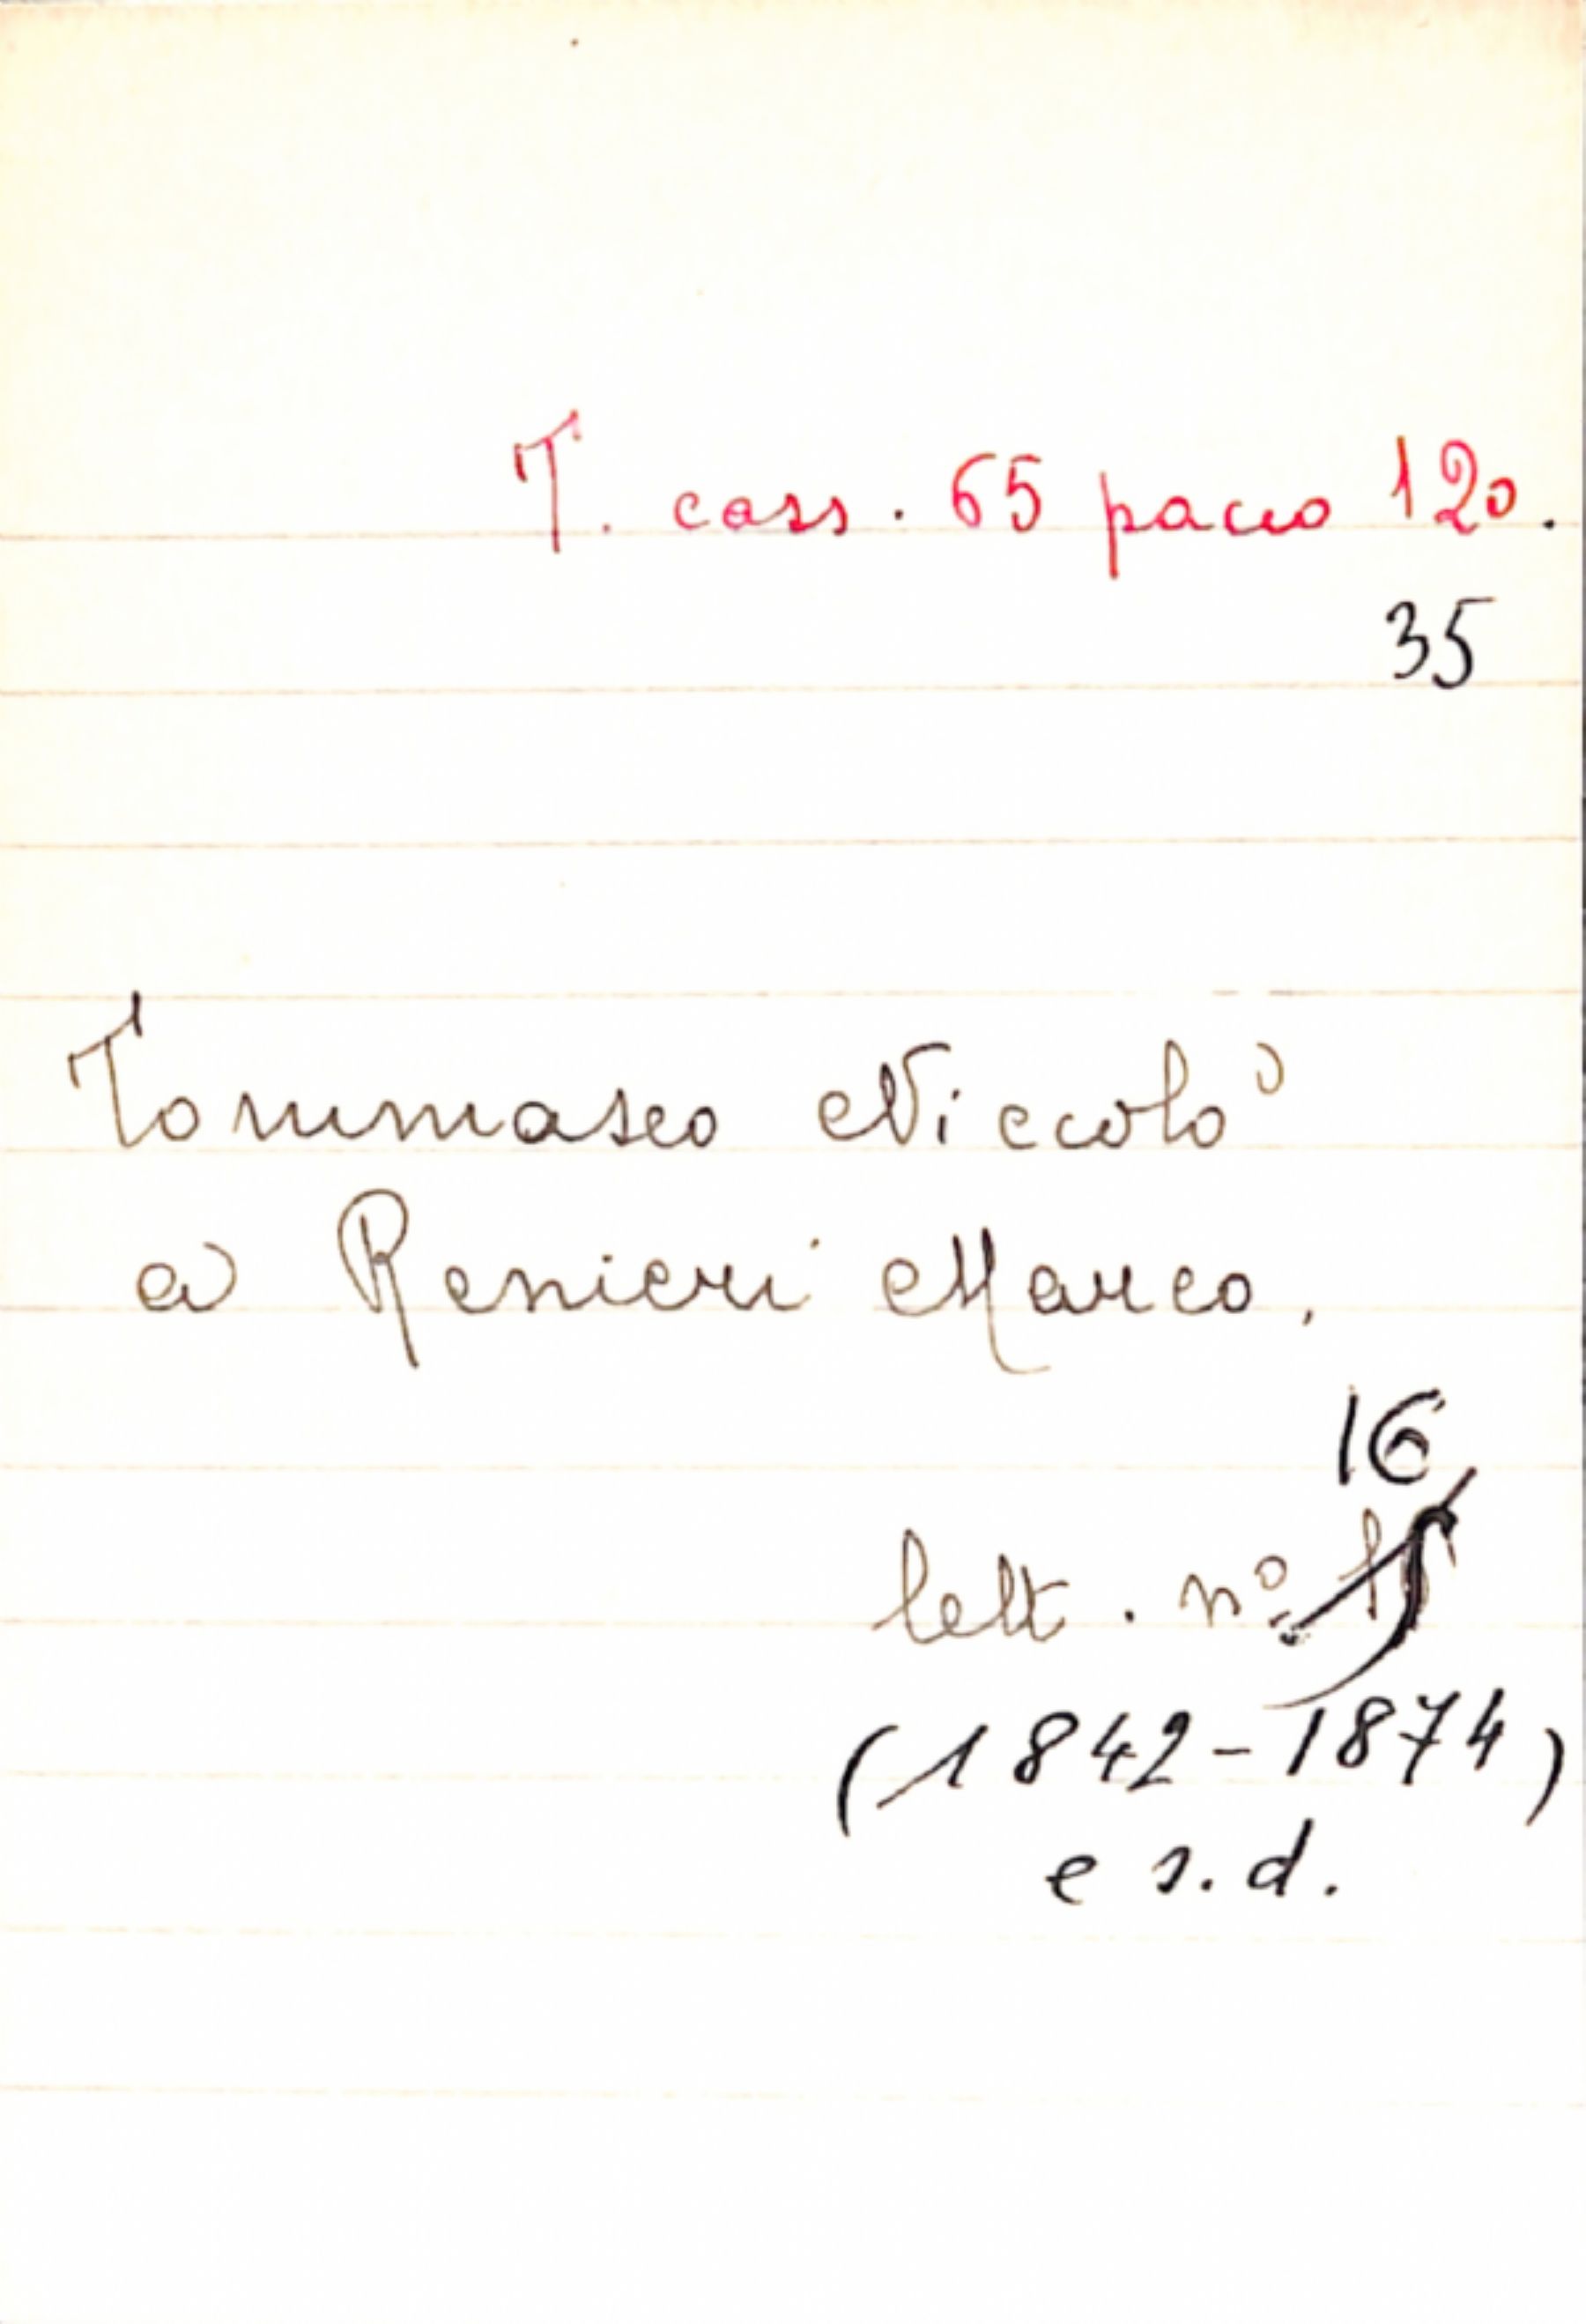 T. cass. 65 pacco 120.
35
Tommaseo Niccolò
a Renieri Marco.
16
lett. nº
(1842-1874)
e s.d.